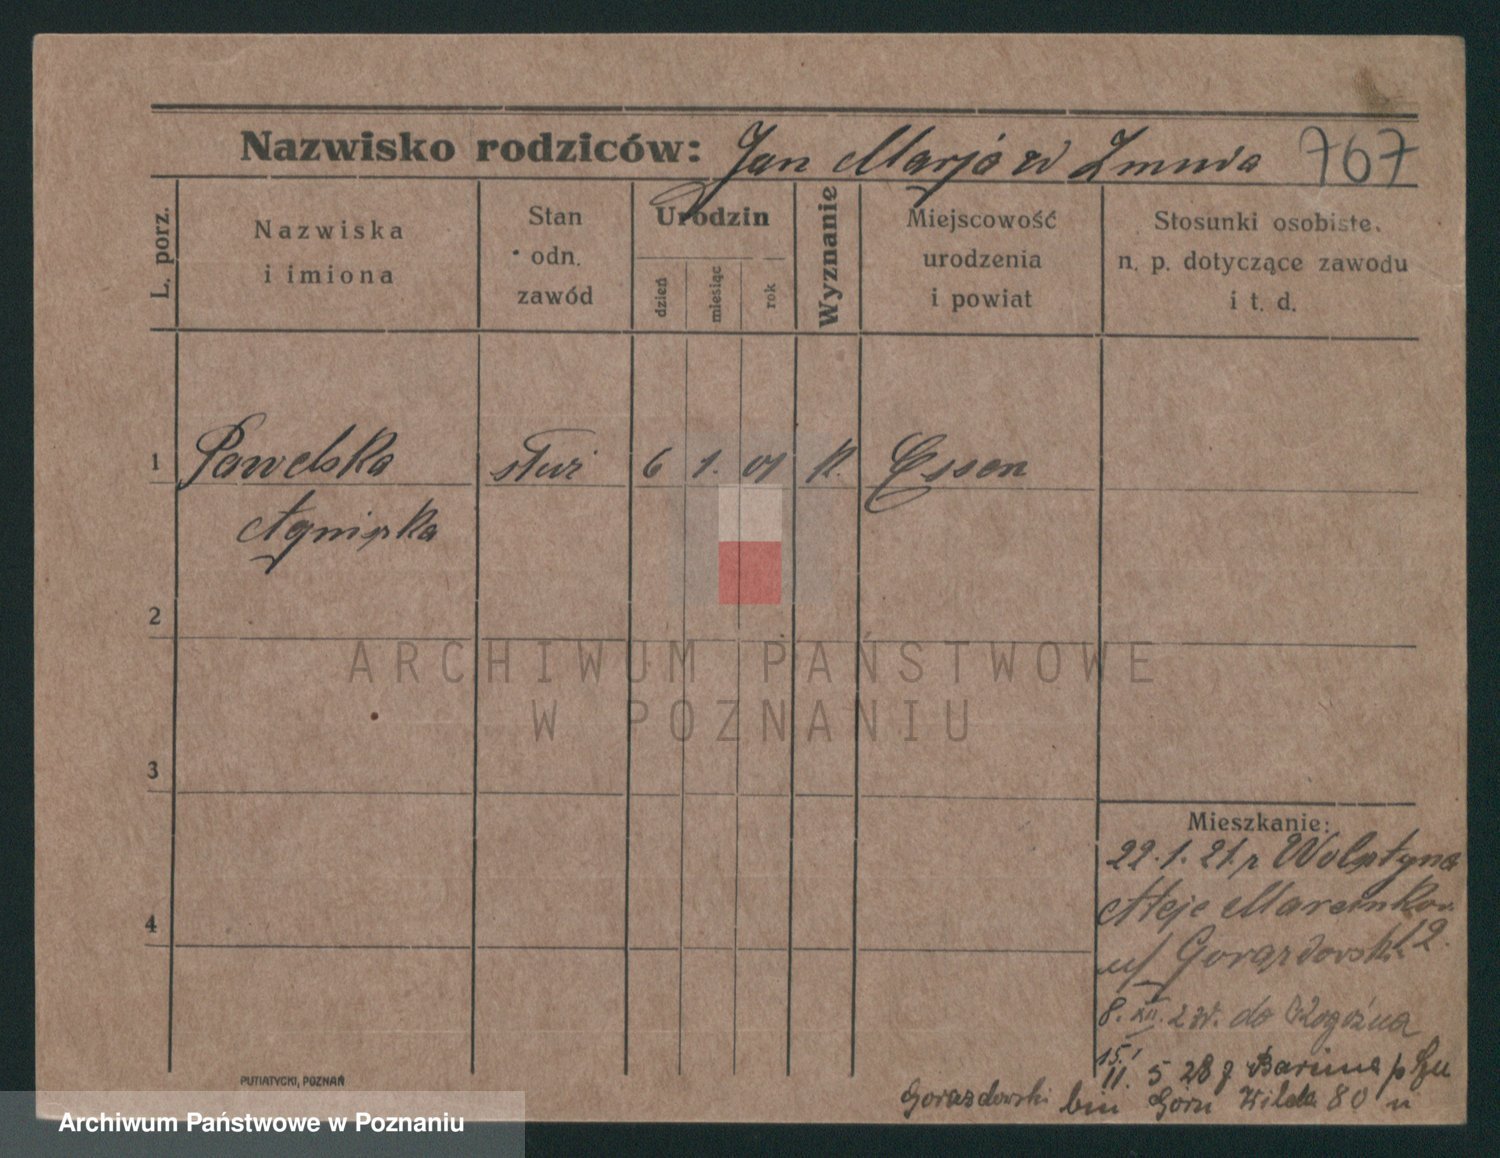 Nazwisko rodziców: Jan Marja zd Zmuda 767
L. porz.
Nazwiska
i imiona
Stan
odn.
zawód
Urodzin
dzień
miesiąc
rok
Wyznanie
Miejscowość
urodzenia
i powiat
Stosunki osobiste,
n. p. dotyczące zawodu
i t. d.
1 Pawelska służ 6 1. 01 K. Essen
Agnieszka
2
ARCHIWUM PAŃSTWOWE
W POZNANIU
3
Mieszkanie:
22.1.21. z Wolsztyna
Aleje Marcinkow.
u/ Gorazdowski 12.
4
8. XII. 2 w. do Rogoźna
15.1
11. 5 28 z
Gorazdowski Górn Wilda 80
PUTIATYCKI, POZNAŃ
Archiwum Państwowe w Poznaniu